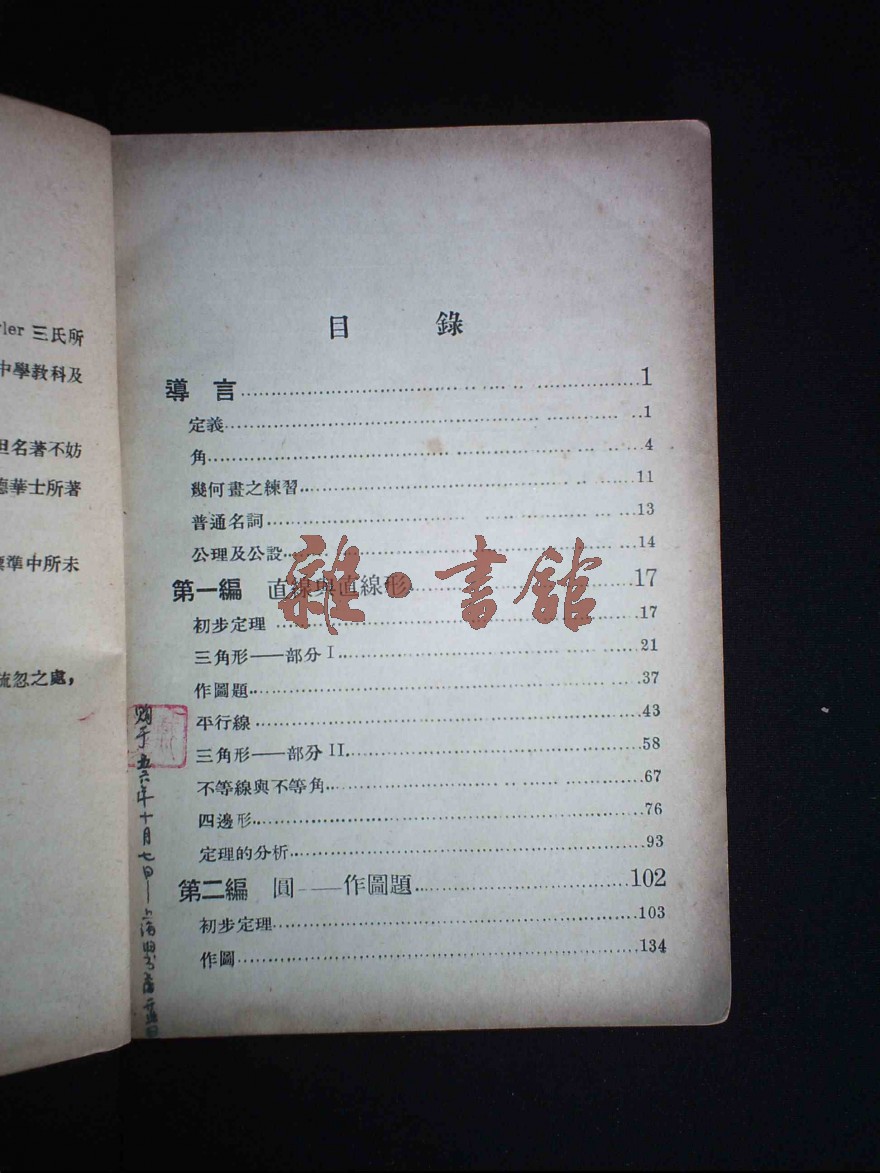 ler 三氏所
中學教科及
但名著不妨
德華士所著
標準中所未
疏忽之處，
目 錄
導 言……1
定義……1
角……4
幾何畫之練習……11
普通名詞……13
公理及公設……14
第一編 直線與直線形……17
初步定理……17
三角形——部分 I……21
作圖題……37
平行線……43
三角形——部分 II……58
不等線與不等角……67
四邊形……76
定理的分析……93
第二編 圓——作圖題……102
初步定理……103
作圖……134
雜·書館
购于五六年十月七日—上海旧书